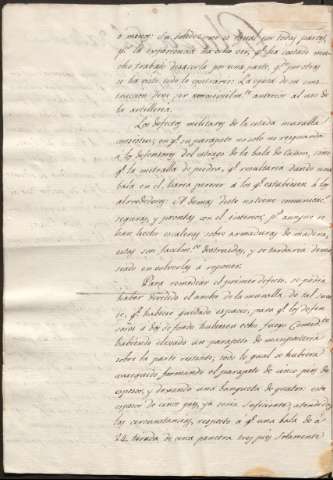 o menos: su solidez no es igual por todas partes,
pr. la experiencia ha echo ver, qe. ha costado mu-
cho trabajo desacerla por una parte, y por otras
se ha visto todo lo contrario: La epoca de su cons-
truccion deve ser aproximadamte. anterior al uso de
la artilleria.
Los defectos militares de la citada muralla
consisten, en qe. su parapeto no solo no resguarda
a los defensores del estrago de la bala de Cañon, sino
qe. la metralla de piedra, qe. resultaria dando una
bala en él, haria perecer a los qe. estubiesen a los
alrrededores: A demas de esto no tiene comunicacs.
seguras, y prontas con el interior; ps. aunque se
han hecho escaleras sobre armaduras de madera,
estas son facilmte. destruidas, y se tardaria dema-
siado en volverlas a reponer.
Para remediar el primer defecto, se podria
haber dividido el ancho de la muralla, de tal suer-
te, qe. hubiese quedado espacio, para qe. los defen-
sores a dos de fondo hubiesen echo fuego comodte.
habiendo elevado un parapeto de mamposteria
sobre la parte restante; todo lo qual se hubiera
conseguido formando el parapeto de cinco pies de
espesor, y dexando una banqueta de quatro: este
espesor de cinco pies, ya seria suficiente, atendidas
las circunstancias, respeto a qe. una bala de á
24. tirada de cerca penetra tres pies solamente